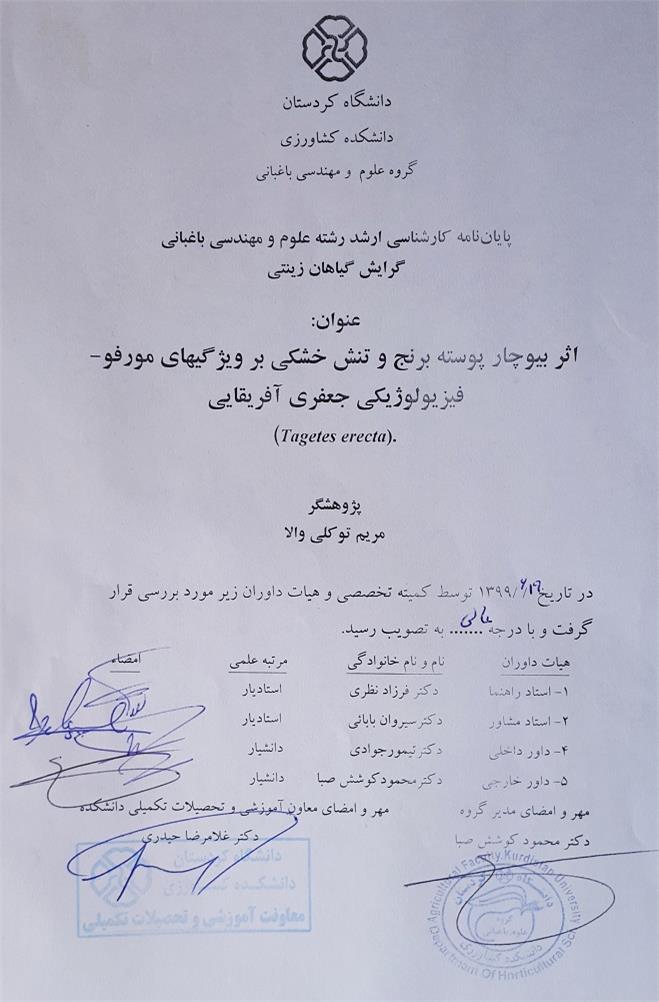 دانشگاه کردستان
دانشکده کشاورزی
گروه علوم و مهندسی باغبانی
پایان‌نامه کارشناسی ارشد رشته علوم و مهندسی باغبانی
گرایش گیاهان زینتی
عنوان:
اثر بیوچار پوسته برنج و تنش خشکی بر ویژگیهای مورفو-
فیزیولوژیکی جعفری آفریقایی
(Tagetes erecta).
پژوهشگر
مریم توکلی والا
در تاریخ ۱۳۹۹/ توسط کمیته تخصصی و هیات داوران زیر مورد بررسی قرار
گرفت و با درجه ....... عالی به تصویب رسید.
هیات داوران نام و نام خانوادگی مرتبه علمی امضاء
۱- استاد راهنما دکتر فرزاد نظری استادیار
۲- استاد مشاور دکترسیروان بابائی استادیار
۴- داور داخلی دکترتیمورجوادی دانشیار
۵- داور خارجی دکترمحمودکوشش صبا دانشیار
مهر و امضای مدیر گروه مهر و امضای معاون آموزشی و تحصیلات تکمیلی دانشکده
دکتر محمود کوشش صبا دکتر غلامرضا حیدری
دانشگاه کردستان
دانشکده کشاورزی
معاونت آموزشی و تحصیلات تکمیلی
Agricultural Faculty, Kurdistan University
Department Of Horticultural
دانشگاه کردستان
گروه
علوم باغبانی
دانشکده کشاورزی